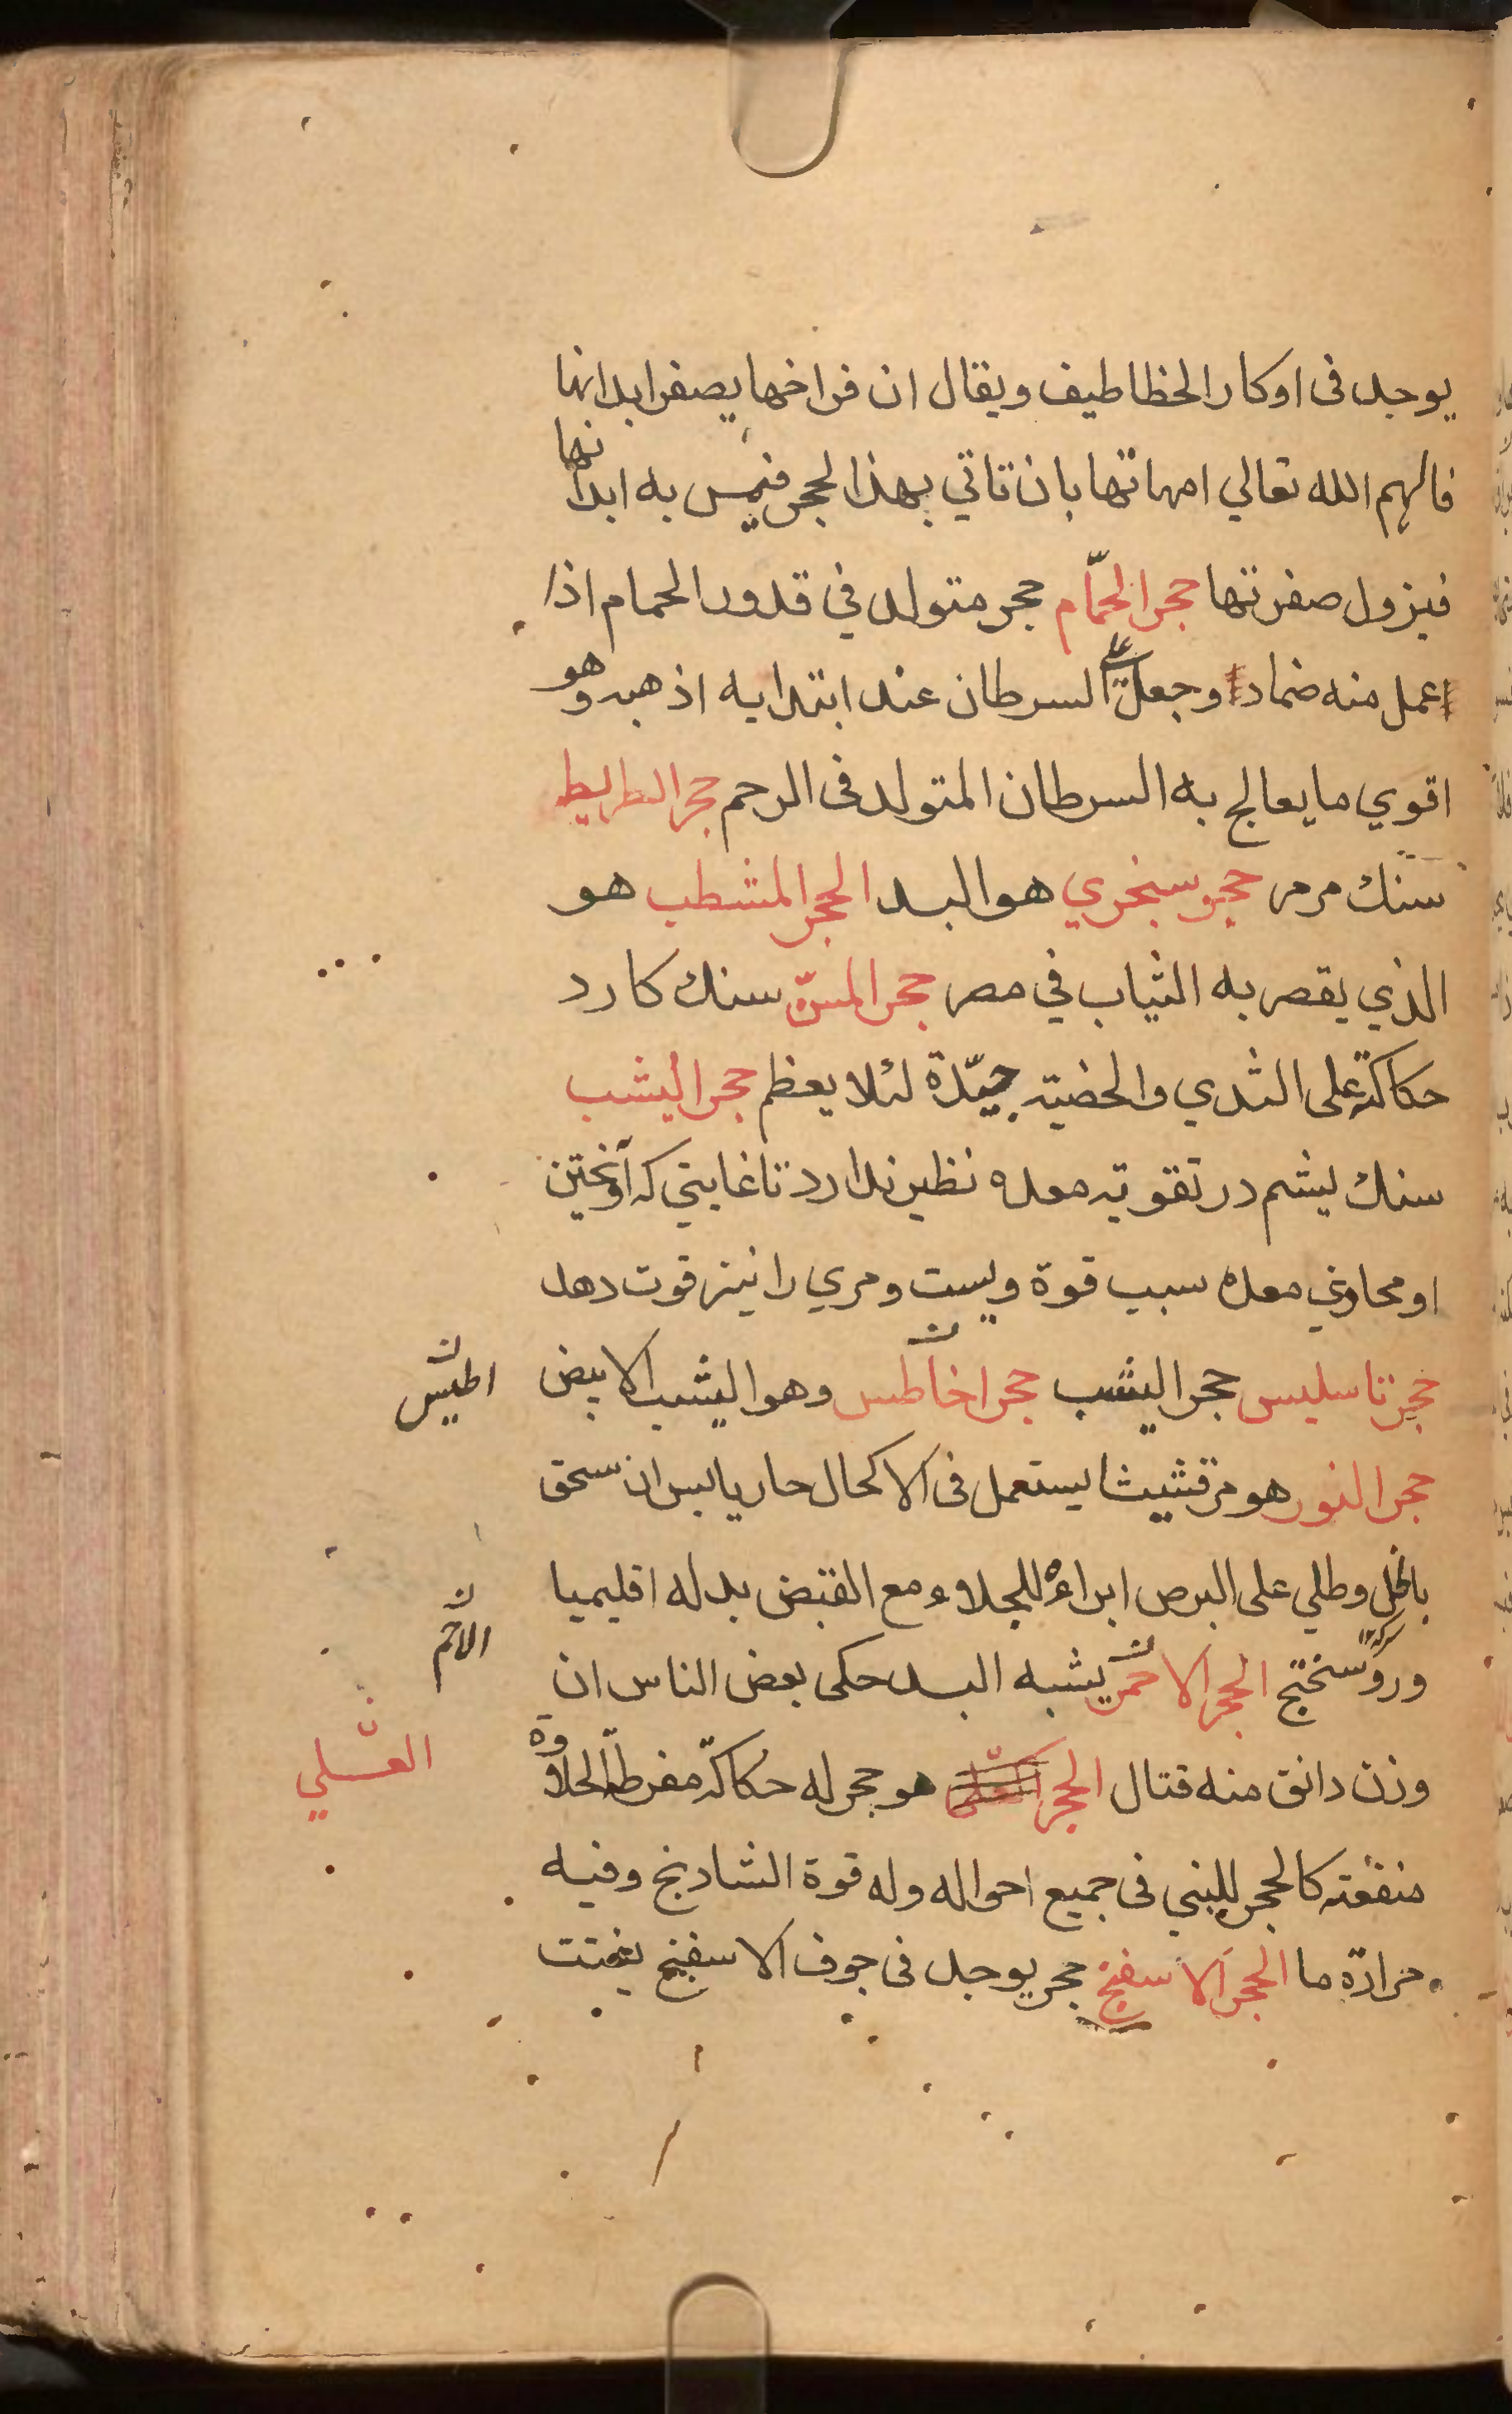 يوجد فى اوكار الخطاطيف ويقال ان فراخها يصفر ابدانها
فالهم الله تعالي امهاتها بان تاتي بهذا الحجر فيمس به ابدانها
فيزول صفرتها حجر الحمّام حجر متولد في قدور الحمام اذا
عمل منه ضماد وجعل علي السرطان عند ابتدايه اذهبه وهو
اقوي ما يعالج به السرطان المتولد فى الرحم حجر الطريط
سنك مرمر حجر سبخري هو البسد الحجر المشطب هو
الذي يقصر به الثياب في مصر حجر المسنّ سنك كارد
حكاكته على الثدي والخصيته جيّدة لئلا يعظم حجر اليشب
سنك يشم در تقويه معده نظير ندارد تا غايتي كه آويختن
او محاذي معده سبب قوة ويست ومري را نيز قوت دهد
حجر تاسليس حجر اليشب حجر اخاطس وهو اليشب الابيض
اطيس
حجر النور هو مرقشيثا يستعمل فى الاكحال حار يابس ان سحق
بالخل وطلي على البرص ابراءه للجلاء ومع القبض بدله اقليميا
وروسختج الحجر الاحمر يشبه البسد حكى بعض الناس ان
وزن دانق منه قتال الحجر هو حجر له حكاكة مفرطة الحلاوة
العسلي
منفعته كالحجر اللبني فى جميع احواله وله قوة الشادنج وفيه
حرارة ما الحجر الاسفنج حجر يوجد فى جوف الاسفنج يفتت